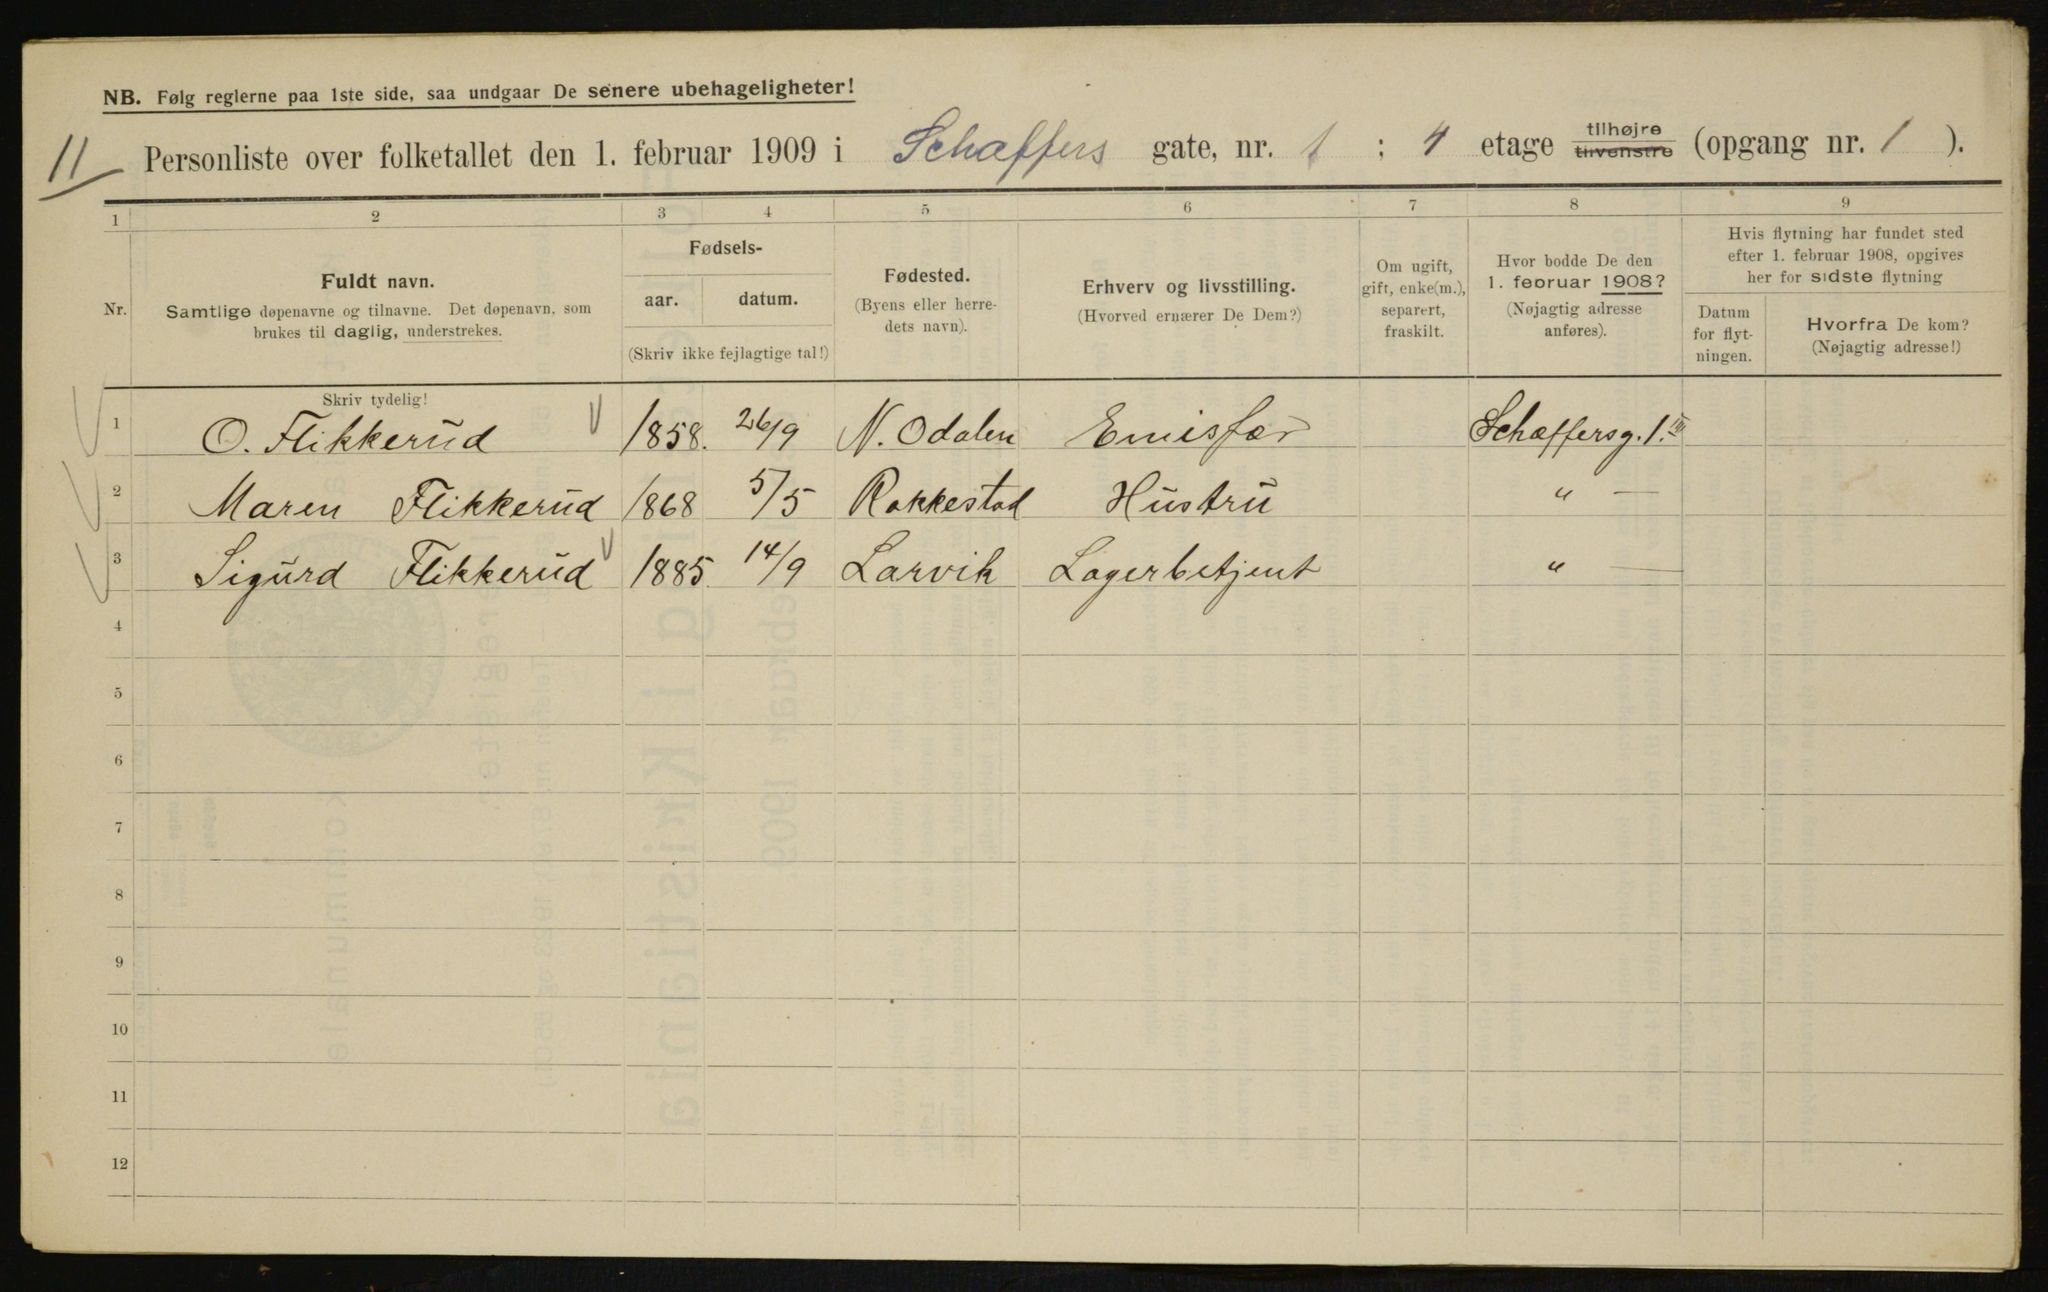 NB. Følg reglerne paa 1ste side, saa undgaar De senere ubehageligheter!
11
Personliste over folketallet den 1. februar 1909 i Schæffers gate, nr. 1 ; 4 etage tilhøjre tilvenstre (opgang nr. 1 ).
1 2 3 4 5 6 7 8 9
Nr.
Fuldt navn.
Samtlige døpenavne og tilnavne. Det døpenavn, som
brukes til daglig, understrekes.
Fødsels-
aar. datum.
(Skriv ikke fejlagtige tal!)
Fødested.
(Byens eller herre-
dets navn).
Erhverv og livsstilling.
(Hvorved ernærer De Dem?)
Om ugift,
gift, enke(m.),
separert,
fraskilt.
Hvor bodde De den
1. februar 1908?
(Nøjagtig adresse
anføres).
Hvis flytning har fundet sted
efter 1. februar 1908, opgives
her for sidste flytning
Datum
for flyt-
ningen.
Hvorfra De kom?
(Nøjagtig adresse!)
Skriv tydelig!
1 O. Flikkerud 1858. 26/9 N. Odalen Emisfær Schæffersg. 1. III
2 Maren Flikkerud 1868 5/5 Rakkestad Hustru " —
3 Sigurd Flikkerud 1885. 14/9 Larvik Lagerbetjent " —
4
5
6
7
8
9
10
11
12